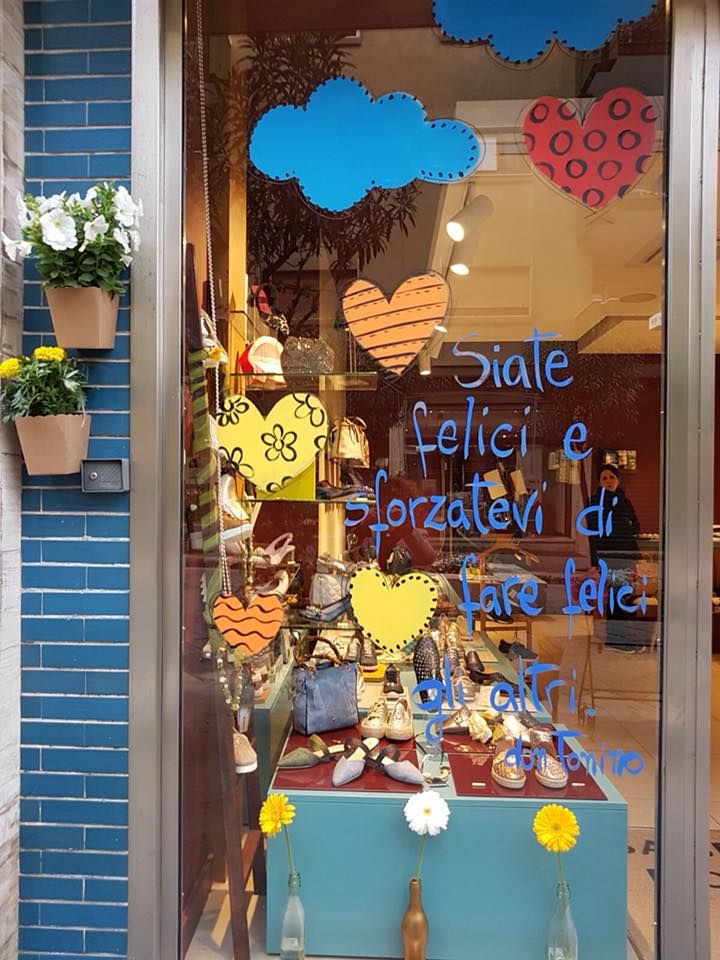 Siate
felici e
sforzatevi di
fare felici
gli altri.
don Tonino